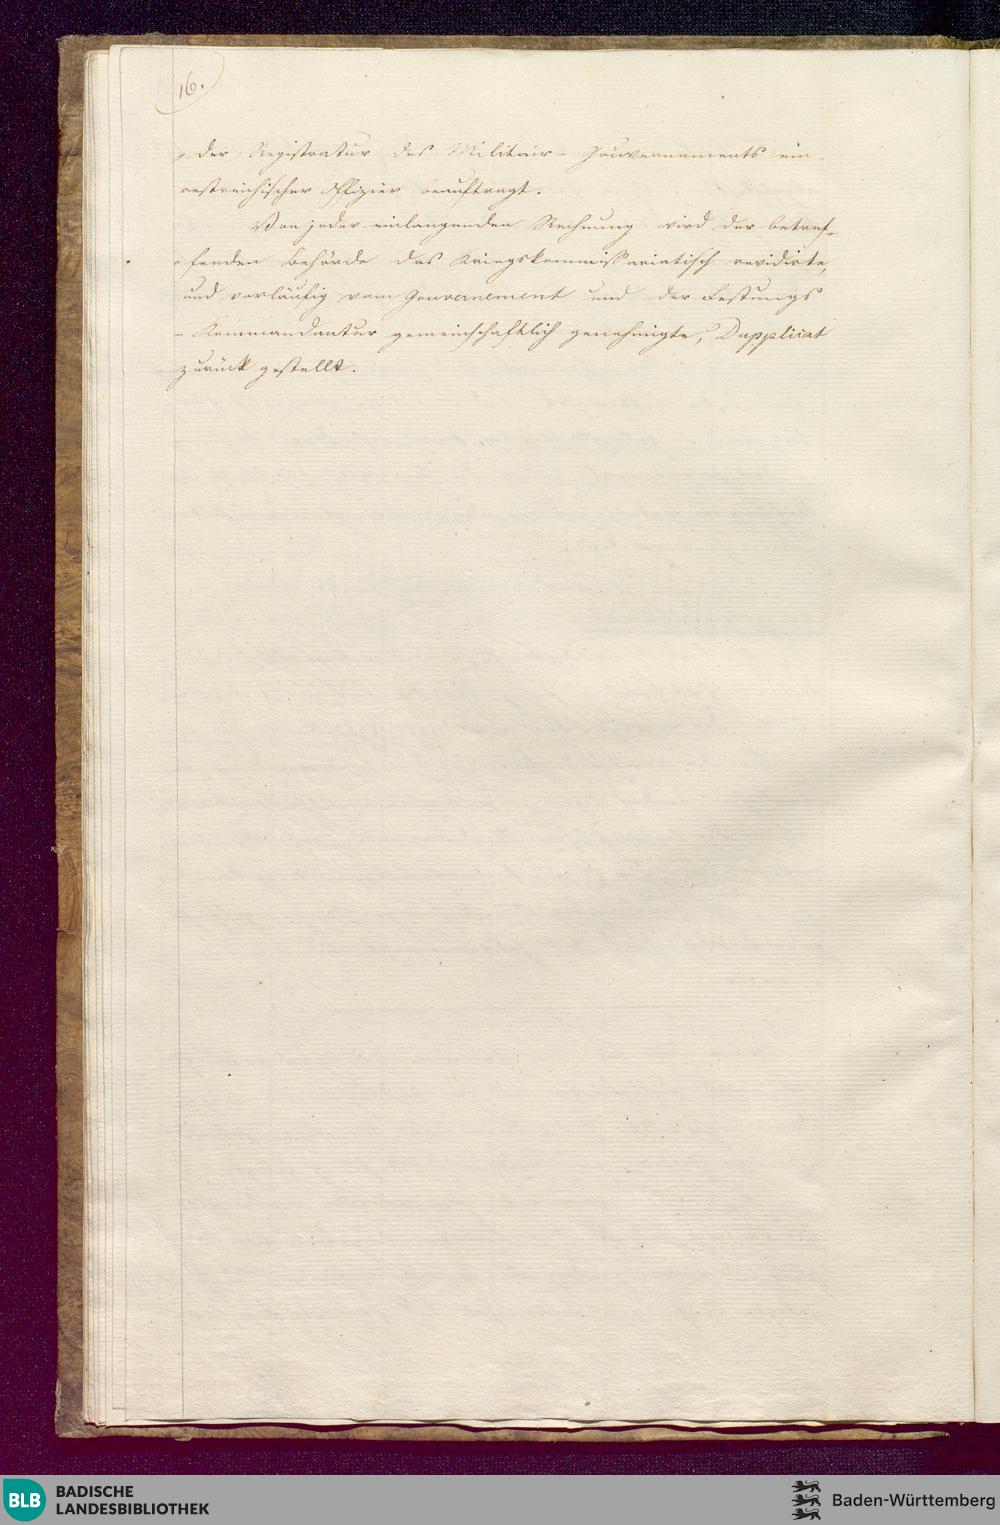 16.
der Registratur des Militair-Gouvernements ein
oestreichischer Offizier beauftragt.
Von jeder einlangenden Rechnung wird der betref-
fenden Behörde das kriegskommissariatisch revidirte,
und vorläufig vom Gouvernement und der Festungs
-Kommandantur gemeinschaftlich genehmigte, Dupplicat
zurück gestellt.
BLB BADISCHE
LANDESBIBLIOTHEK
Baden-Württemberg